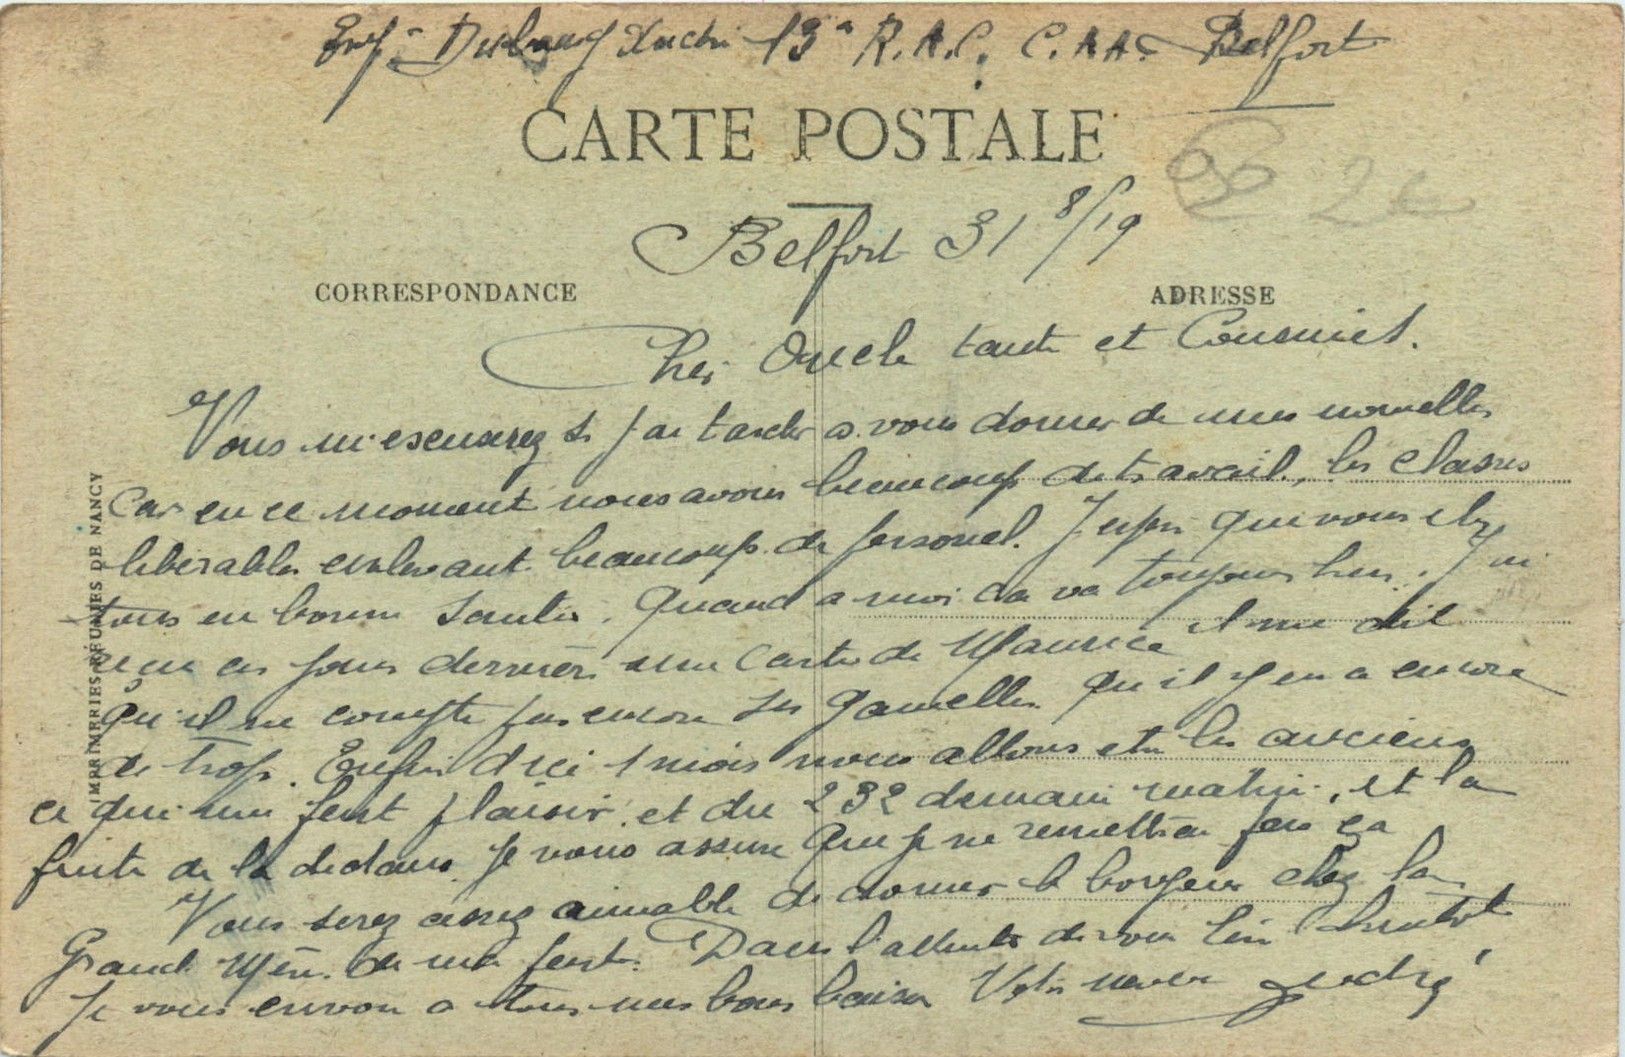 Exp. Dubourg André 13e R.A.C. C.A.A. Belfort
CARTE POSTALE
Belfort 31 8/19
CORRESPONDANCE
ADRESSE
Cher Oncle tante et Cousines.
Vous m'escuserez si j'ai tarder a vous donner de mes nouvelles
Car en ce moment nous avons beaucoup de travail, les classes
liberables enlevant beaucoup de personel. J'esper que vous etes
tous en bonne santer. Quand a moi ca va toujours bien. J'ai
reçu ces jours derniers une Carte de Maurice il me dit
qu'il ne compte pas encore ses gamelles qu'il y en a encore
de trop. Enfin d'ici 1 mois nous allons etre les anciens
ce qui me fait plaisir et du 232 demain matin, et la
fuite de la dedans. Je vous assure que je ne remettrai pas ça
Vous serez assez aimable de donner le bonjour chez la
Grand Mère de ma part. Dans l'attente de vous lire bientot
Je vous envoi a tous mes bons baiser Votre neveu André
IMPRIMERIES RÉUNIES DE NANCY